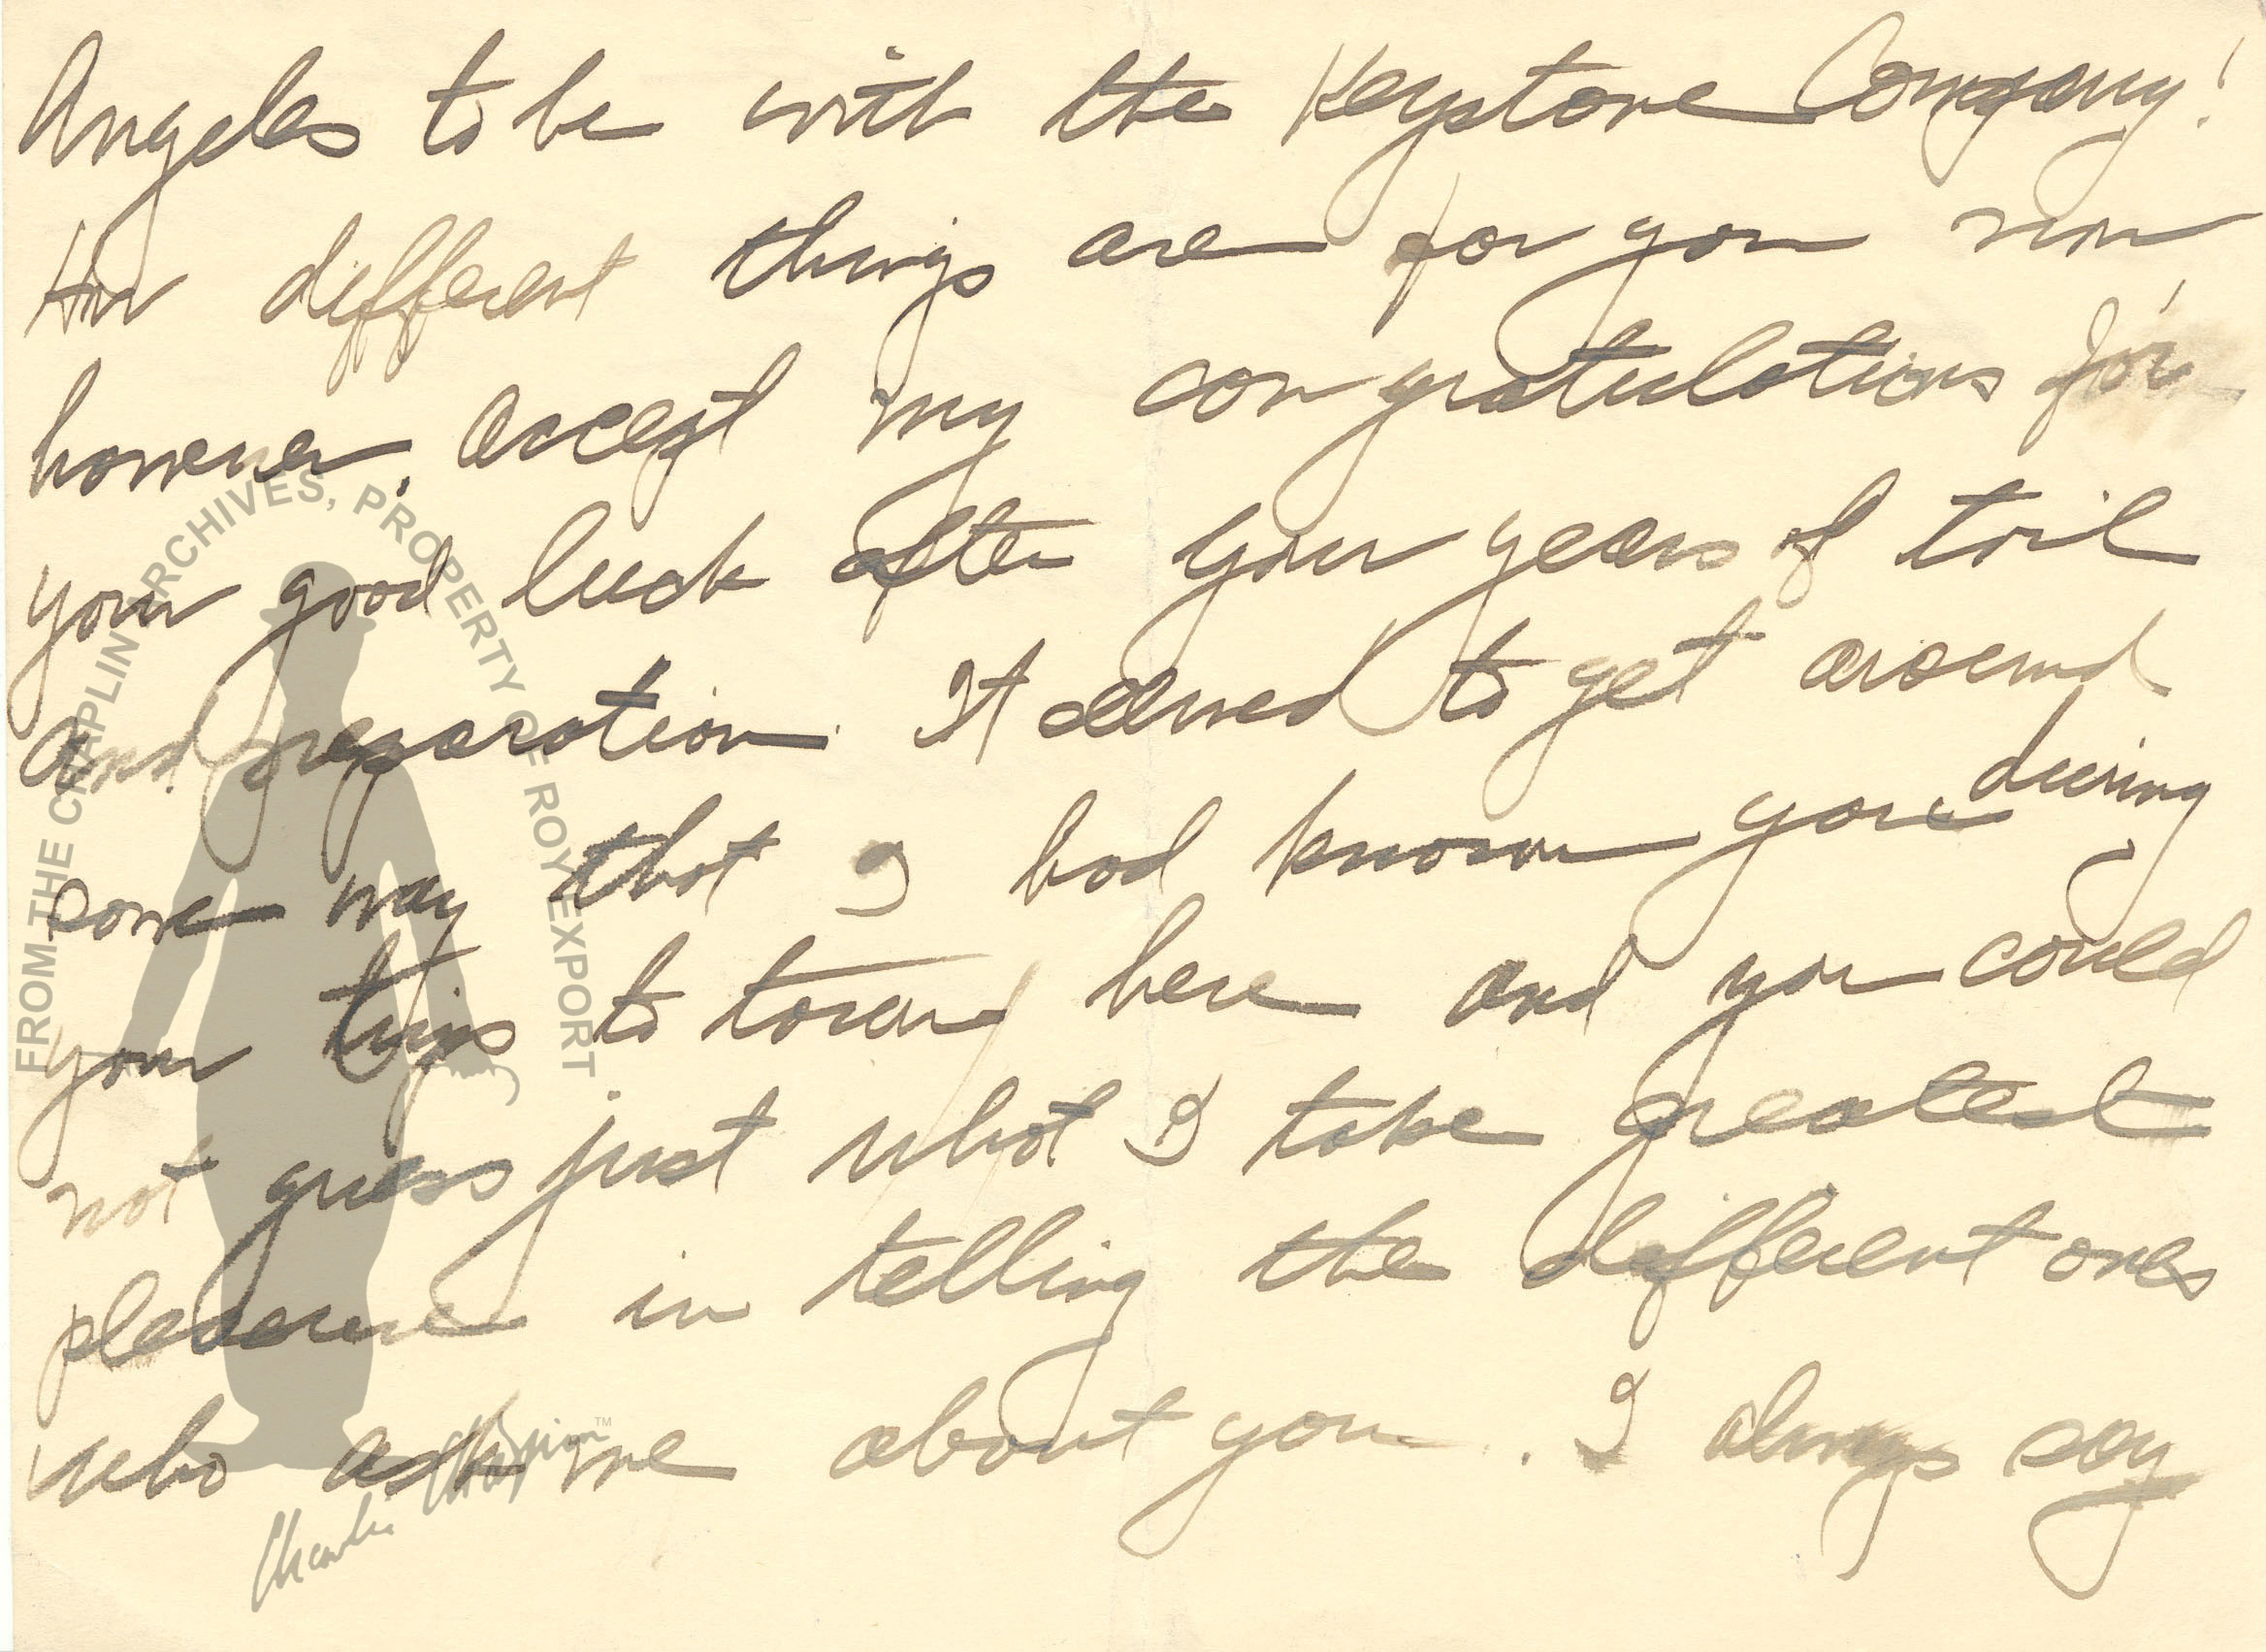 Angeles to be with the Keystone Company!
How different things are for you now
however, accept my congratulations for
your good luck after your years of toil
and preparation. It seemed to get around
some way that I had known you during
your trips to town here and you could
not guess just what I take greatest
pleasure in telling the different ones
who ask me about you. I always say
FROM THE CHAPLIN ARCHIVES, PROPERTY OF ROY EXPORT
Charlie Chaplin™